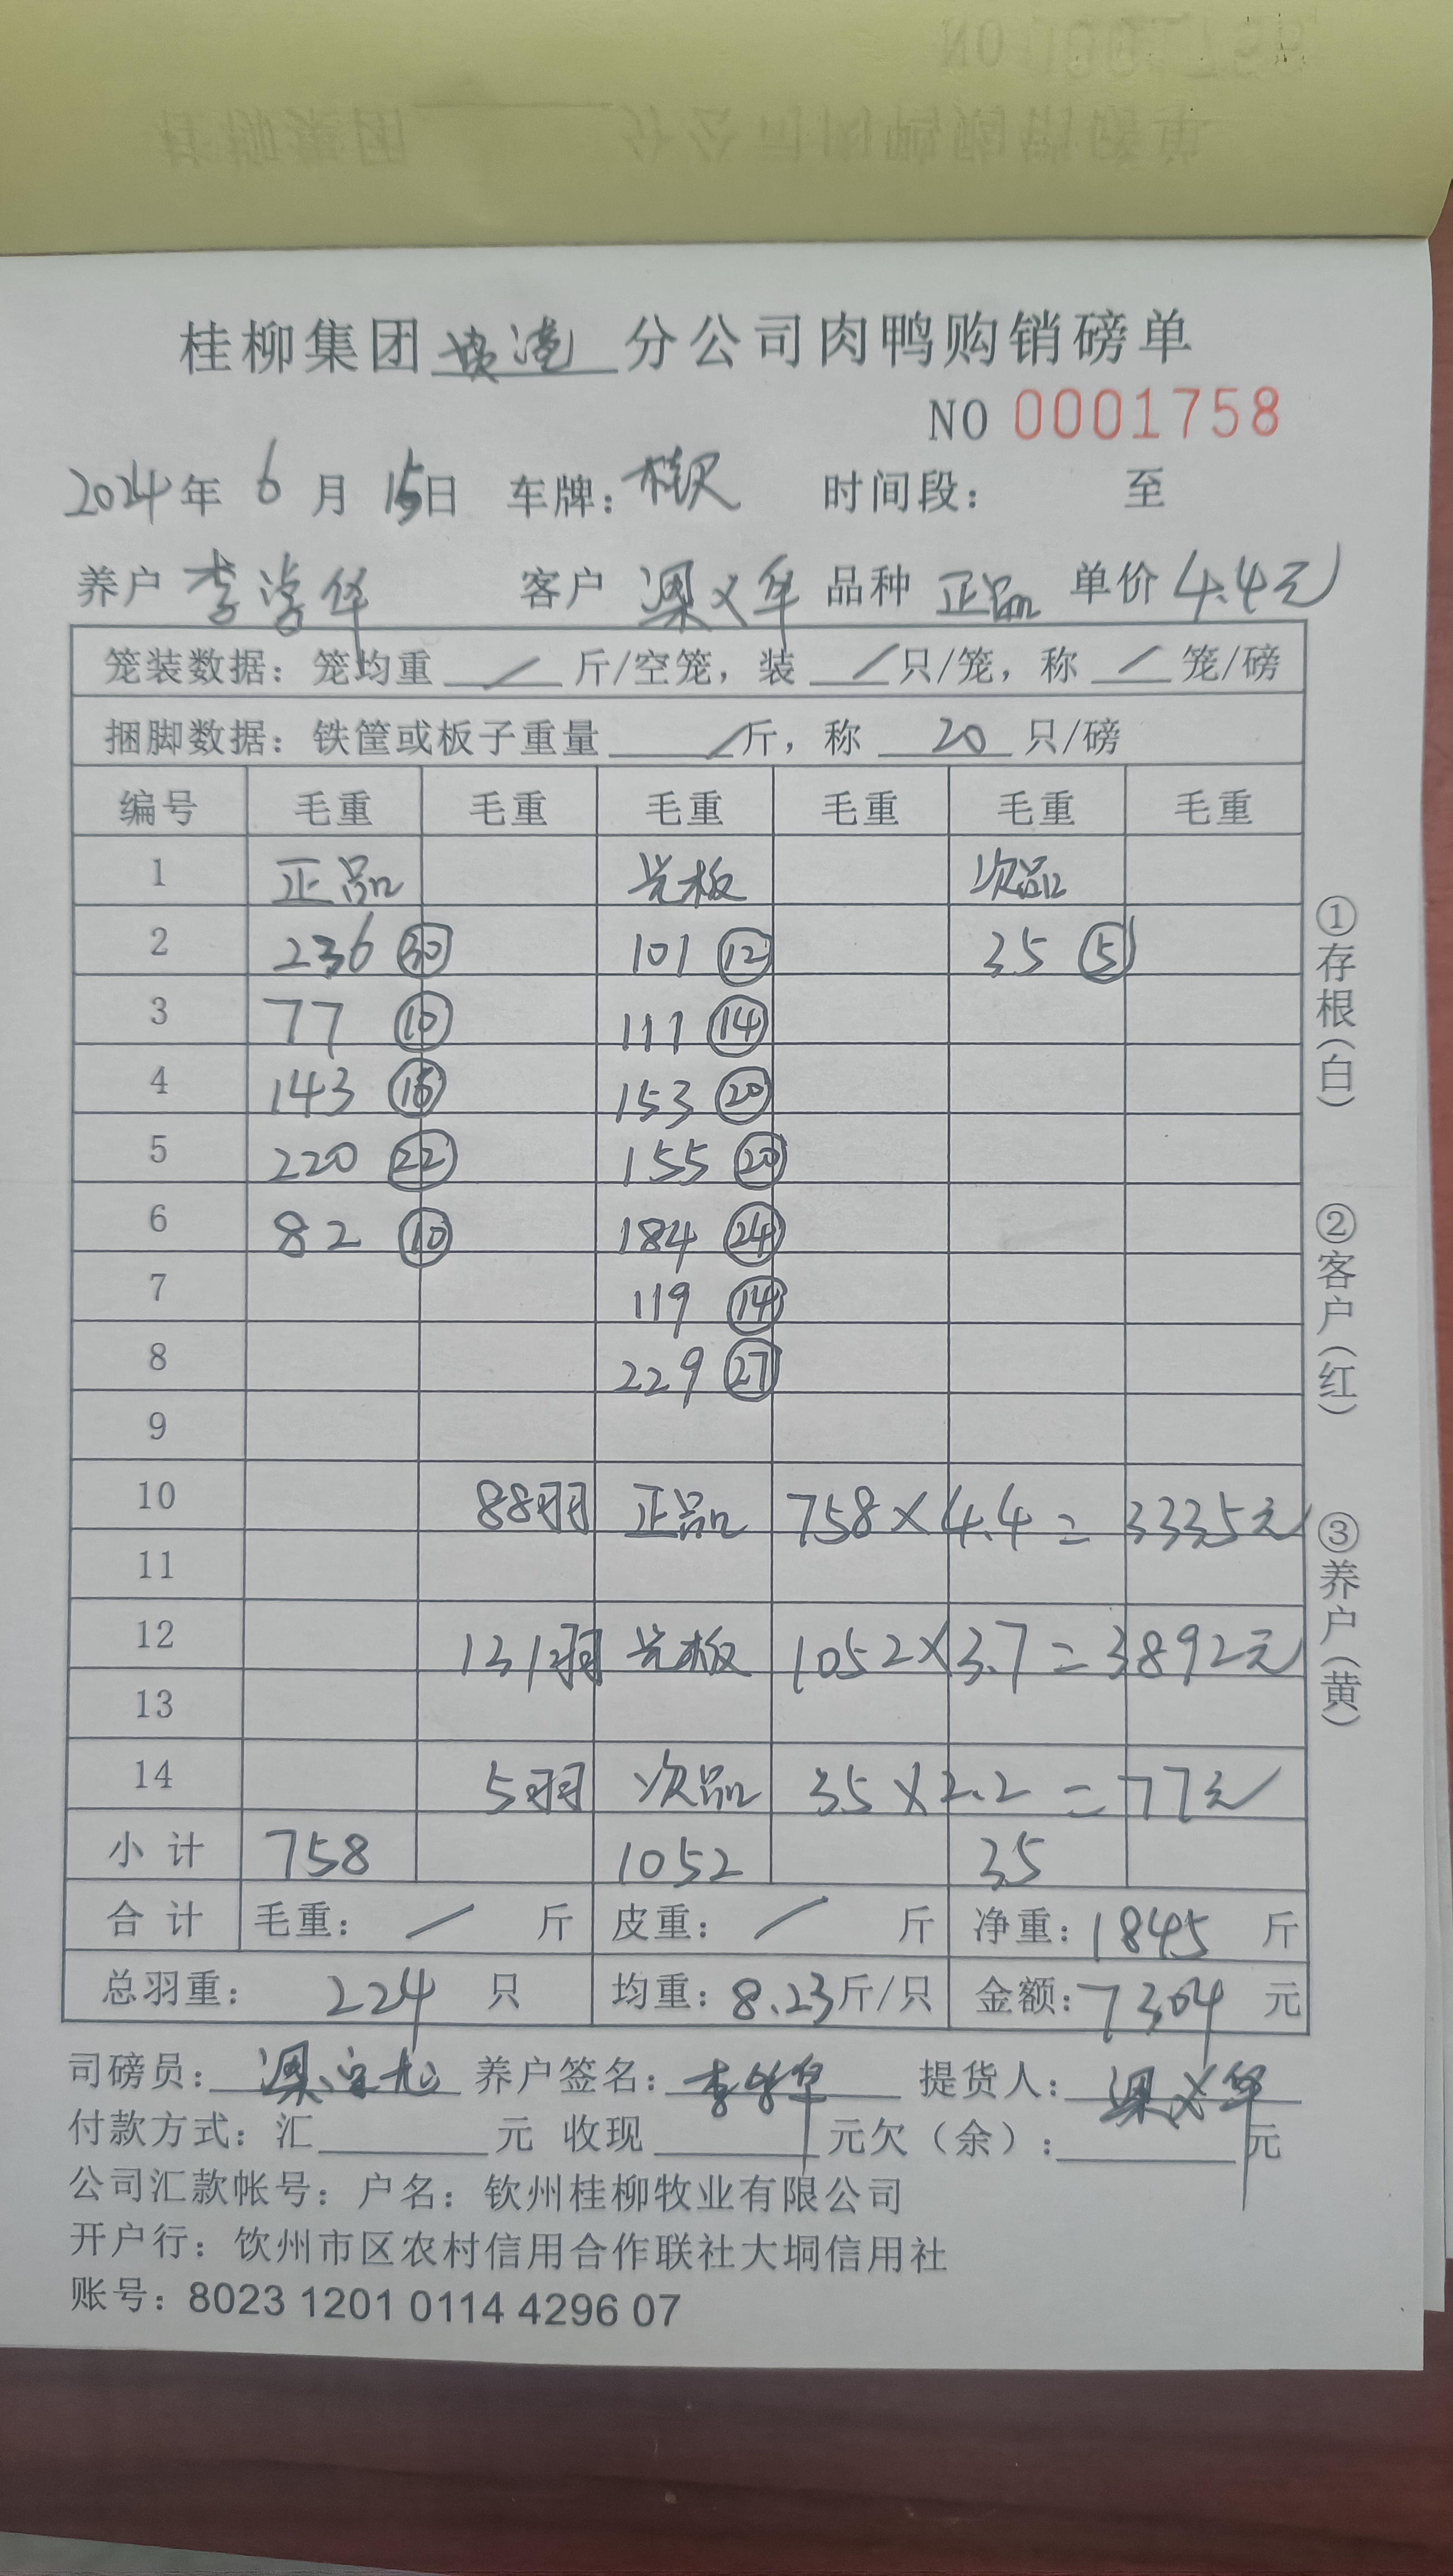 桂柳集团 分公司肉鸭购销磅单
NO 0001758
2024年 6 月 15日 车牌: 时间段: 至
养户 李 华 客户 梁义华 品种 正品 单价 4.4元
笼装数据: 笼均重 / 斤/空笼, 装 / 只/笼, 称 / 笼/磅
捆脚数据: 铁筐或板子重量 / 斤, 称 20 只/磅
编号 毛重 毛重 毛重 毛重 毛重 毛重
1 正品 光板 次品
2 236 ㉚ 101 ⑫ 35 ⑤
3 77 ⑩ 111 ⑭
4 143 ⑯ 153 ⑳
5 220 ㉒ 155 ⑳
6 82 ⑩ 184 ㉔
7 119 ⑭
8 229 ㉗
9
10 88羽 正品 758×4.4=3335元
11
12 131羽 光板 1052×3.7=3892元
13
14 5羽 次品 35×2.2=77元
小计 758 1052 35
合计 毛重: / 斤 皮重: / 斤 净重: 1845 斤
总羽重: 224 只 均重: 8.23斤/只 金额: 7304 元
司磅员: 养户签名: 李 华 提货人: 梁义华
付款方式: 汇 元 收现 元欠(余): 元
公司汇款帐号: 户名: 钦州桂柳牧业有限公司
开户行: 钦州市区农村信用合作联社大垌信用社
账号: 8023 1201 0114 4296 07
①存根(白)
②客户(红)
③养户(黄)